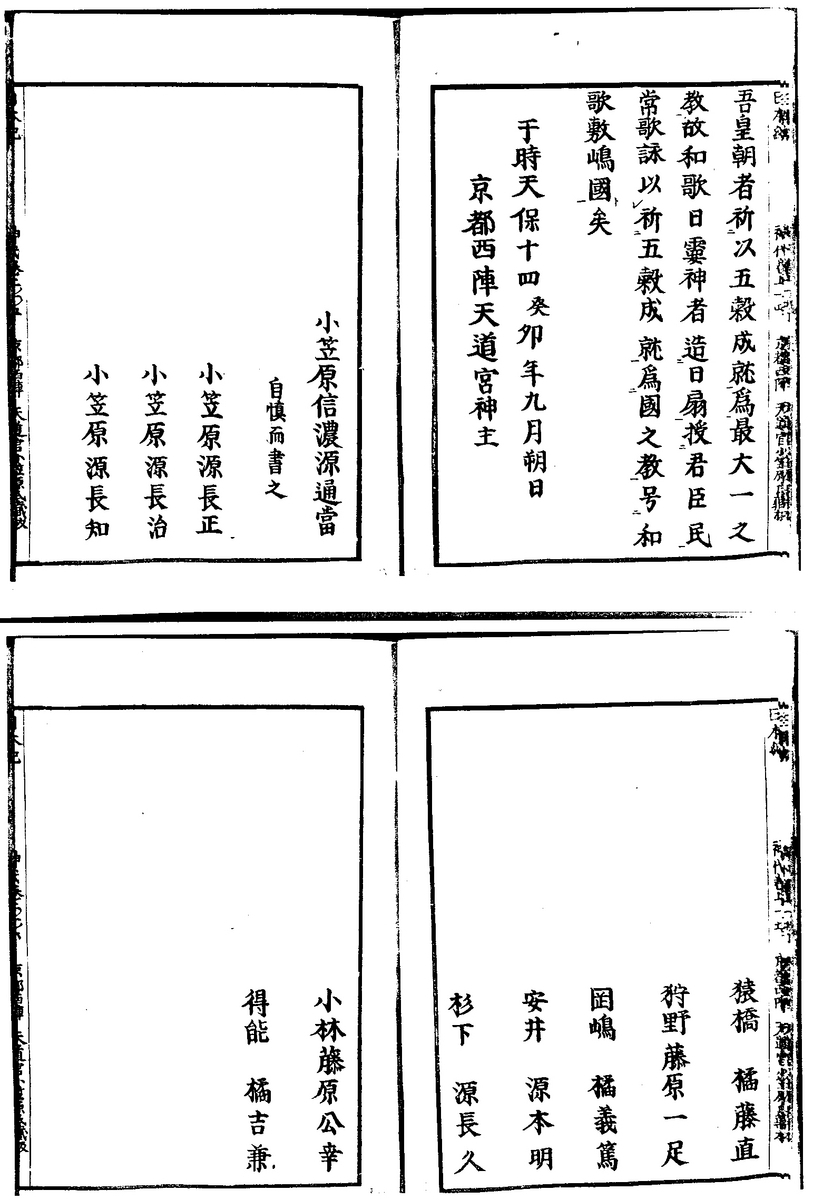 吾皇朝者祈以五穀成就爲最大一之
教故和歌日靈神者造日扇授君臣民
常歌詠以祈五穀成就爲國之教号和
歌敷嶋國矣
于時天保十四癸卯年九月朔日
京都西陣天道宮神主
小笠原信濃源通當
自慎而書之
小笠原源長正
小笠原源長治
小笠原源長知
猿橋　橘藤直
狩野藤原一足
岡嶋　橘義篤
安井　源本明
杉下　源長久
小林藤原公幸
得能　橘吉兼